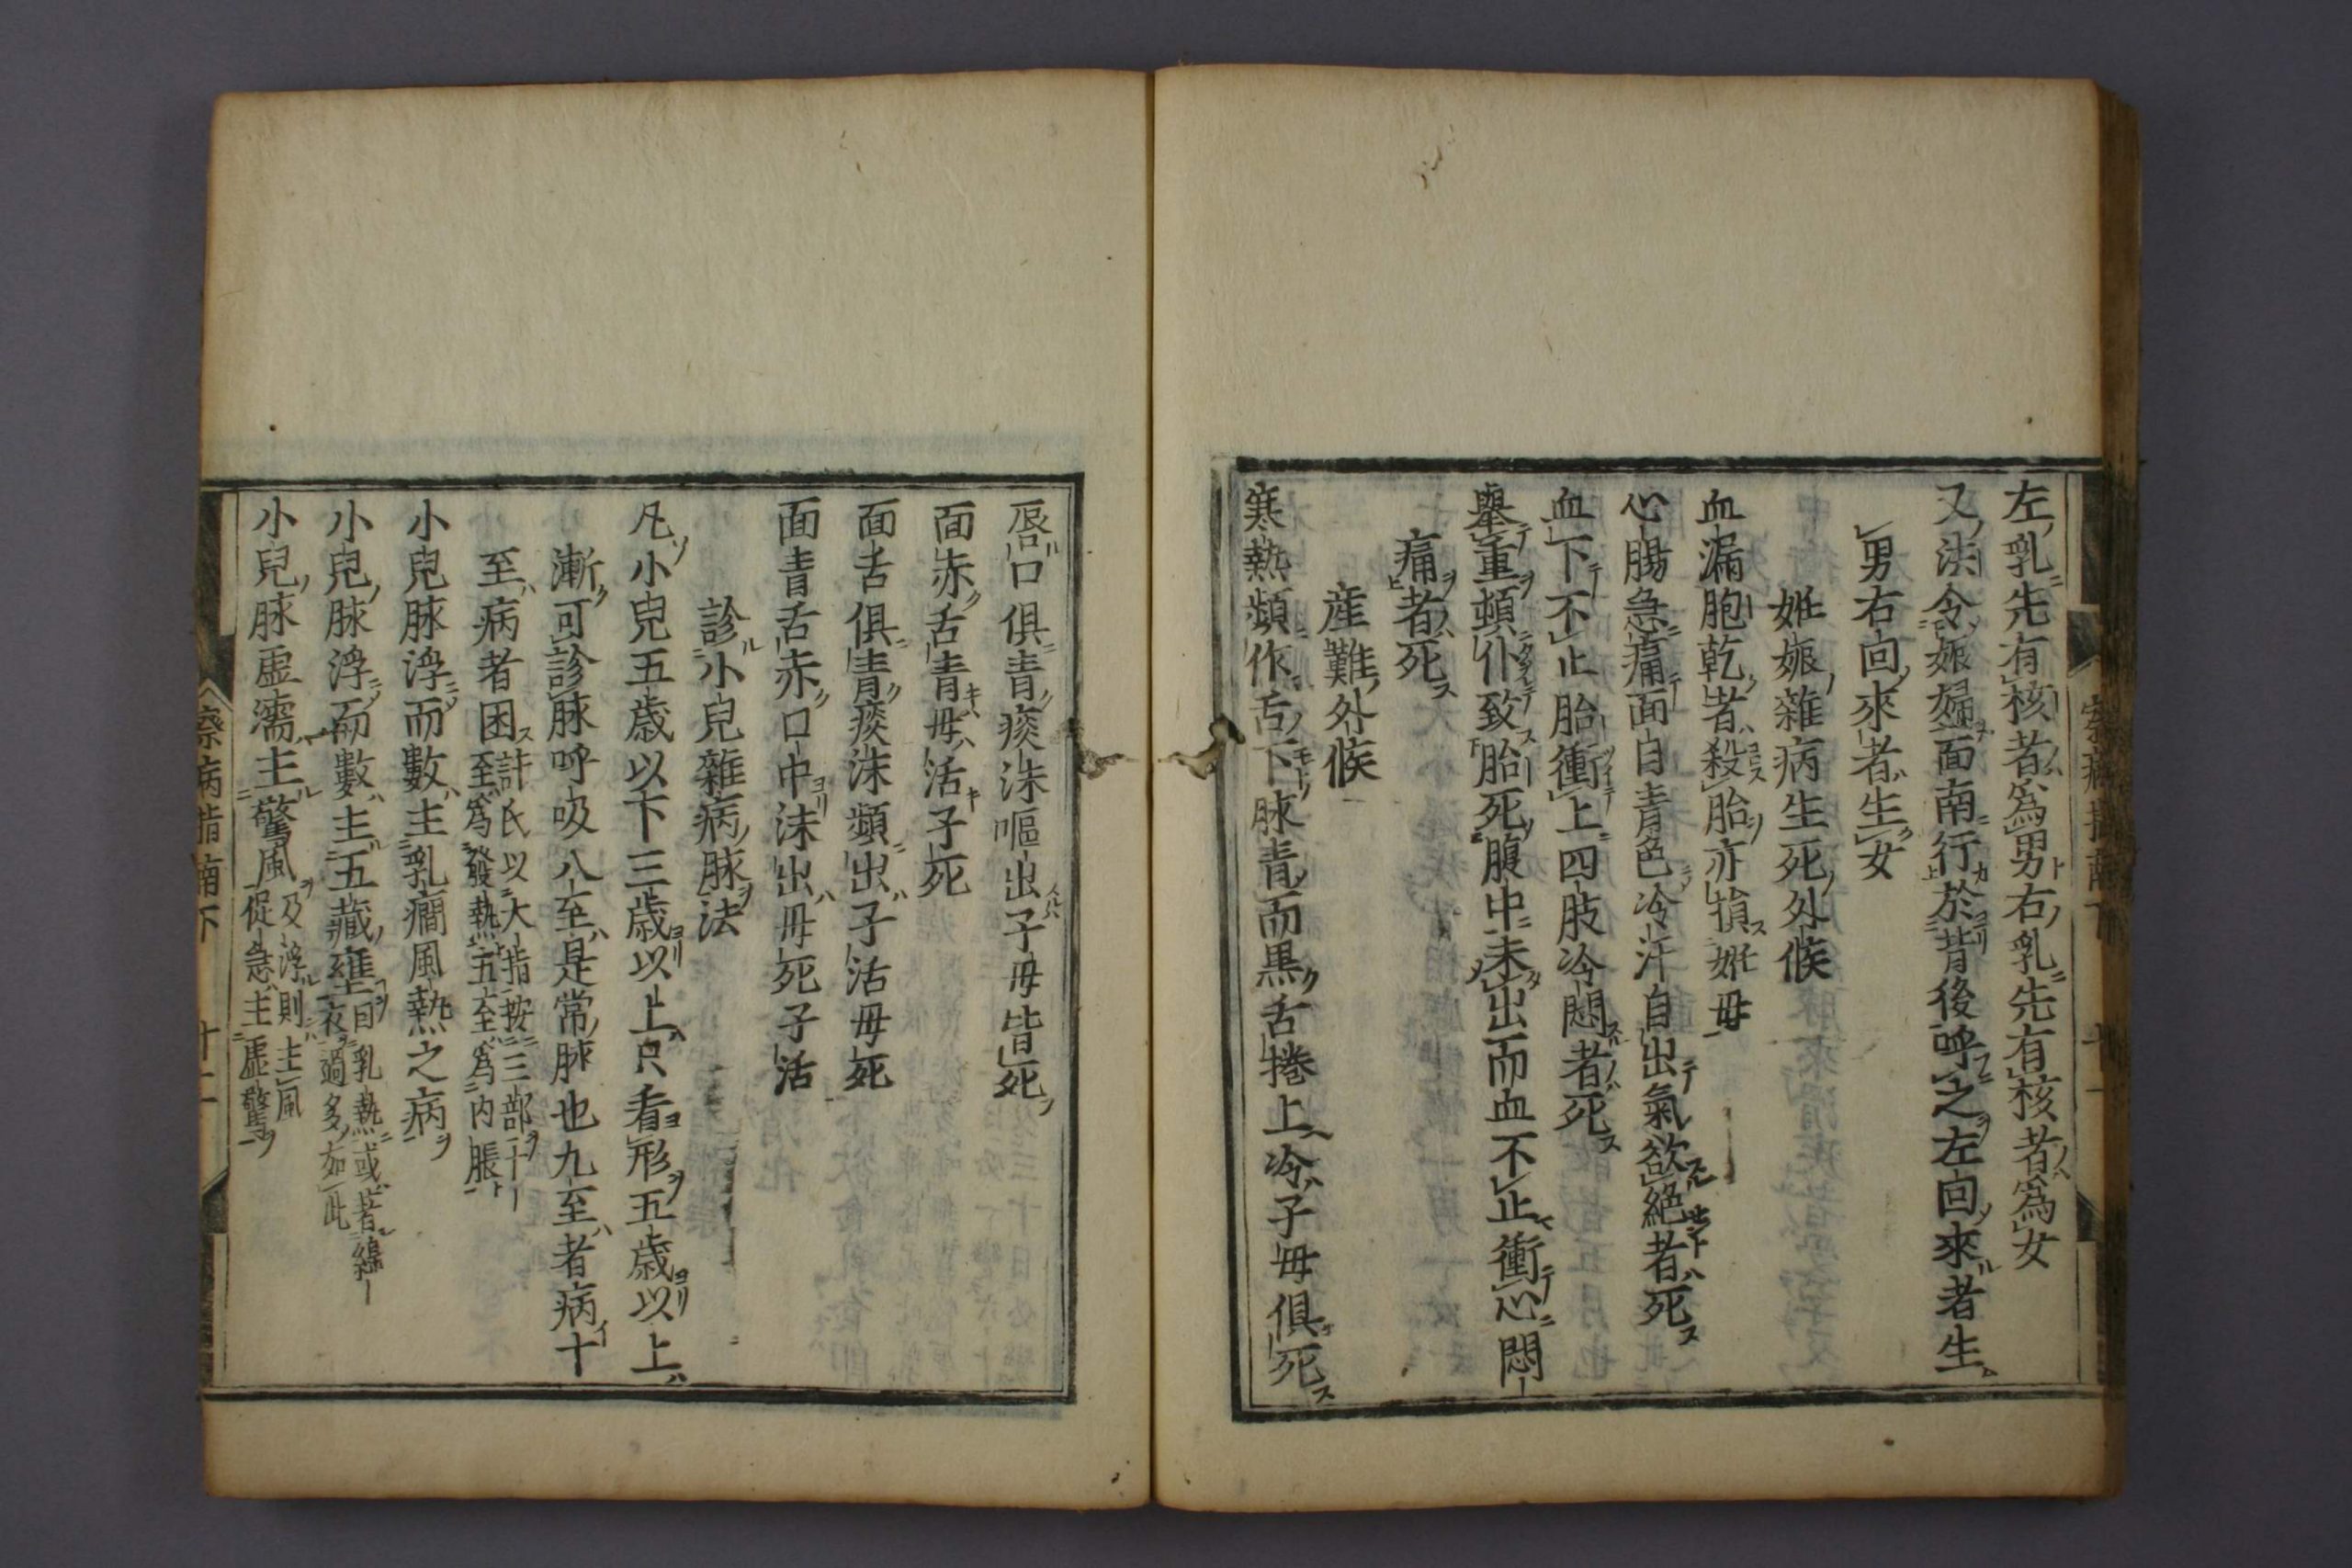 左乳先有核者爲男右乳先有核者爲女
又法令娠婦面南行於背後呼之左回來者生
男右回來者生女
姙娠雜病生死外候
血漏胞乾者殺胎亦損姙母
心腸急痛面白青色冷汗自出氣欲絕者死
血下不止胎衝上四肢冷悶者死
舉重頓仆致胎死腹中未出而血不止衝心悶
痛者死
産難外候
寒熱頻作舌下脉青而黑舌捲上冷子母俱死
唇口俱青痰沫嘔出子母皆死
面赤舌青母活子死
面舌俱青痰沫頻出子活母死
面青舌赤口中沫出母死子活
診小兒雜病脉法
凡小兒五歳以下三歳以上只看形五歳以上
漸可診脉呼吸八至是常脉也九至者病十
至病者困許氏以大指按三部十一
至爲發熱五至爲内脹
小兒脉浮而數主乳癇風熱之病
小兒脉浮而數主五藏壅因乳熱或著綿
衣過多如此
小兒脉虛濡主驚風及浮則主風
促急主虛驚
察病指南下 十二